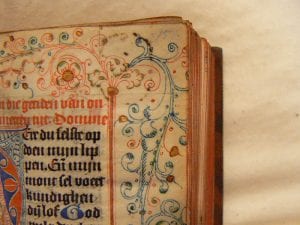 in die getiden van on
Domine
Ere du selste op
doen mijn lip
pen. En mijn
mont sel voert
kundighen
lof God